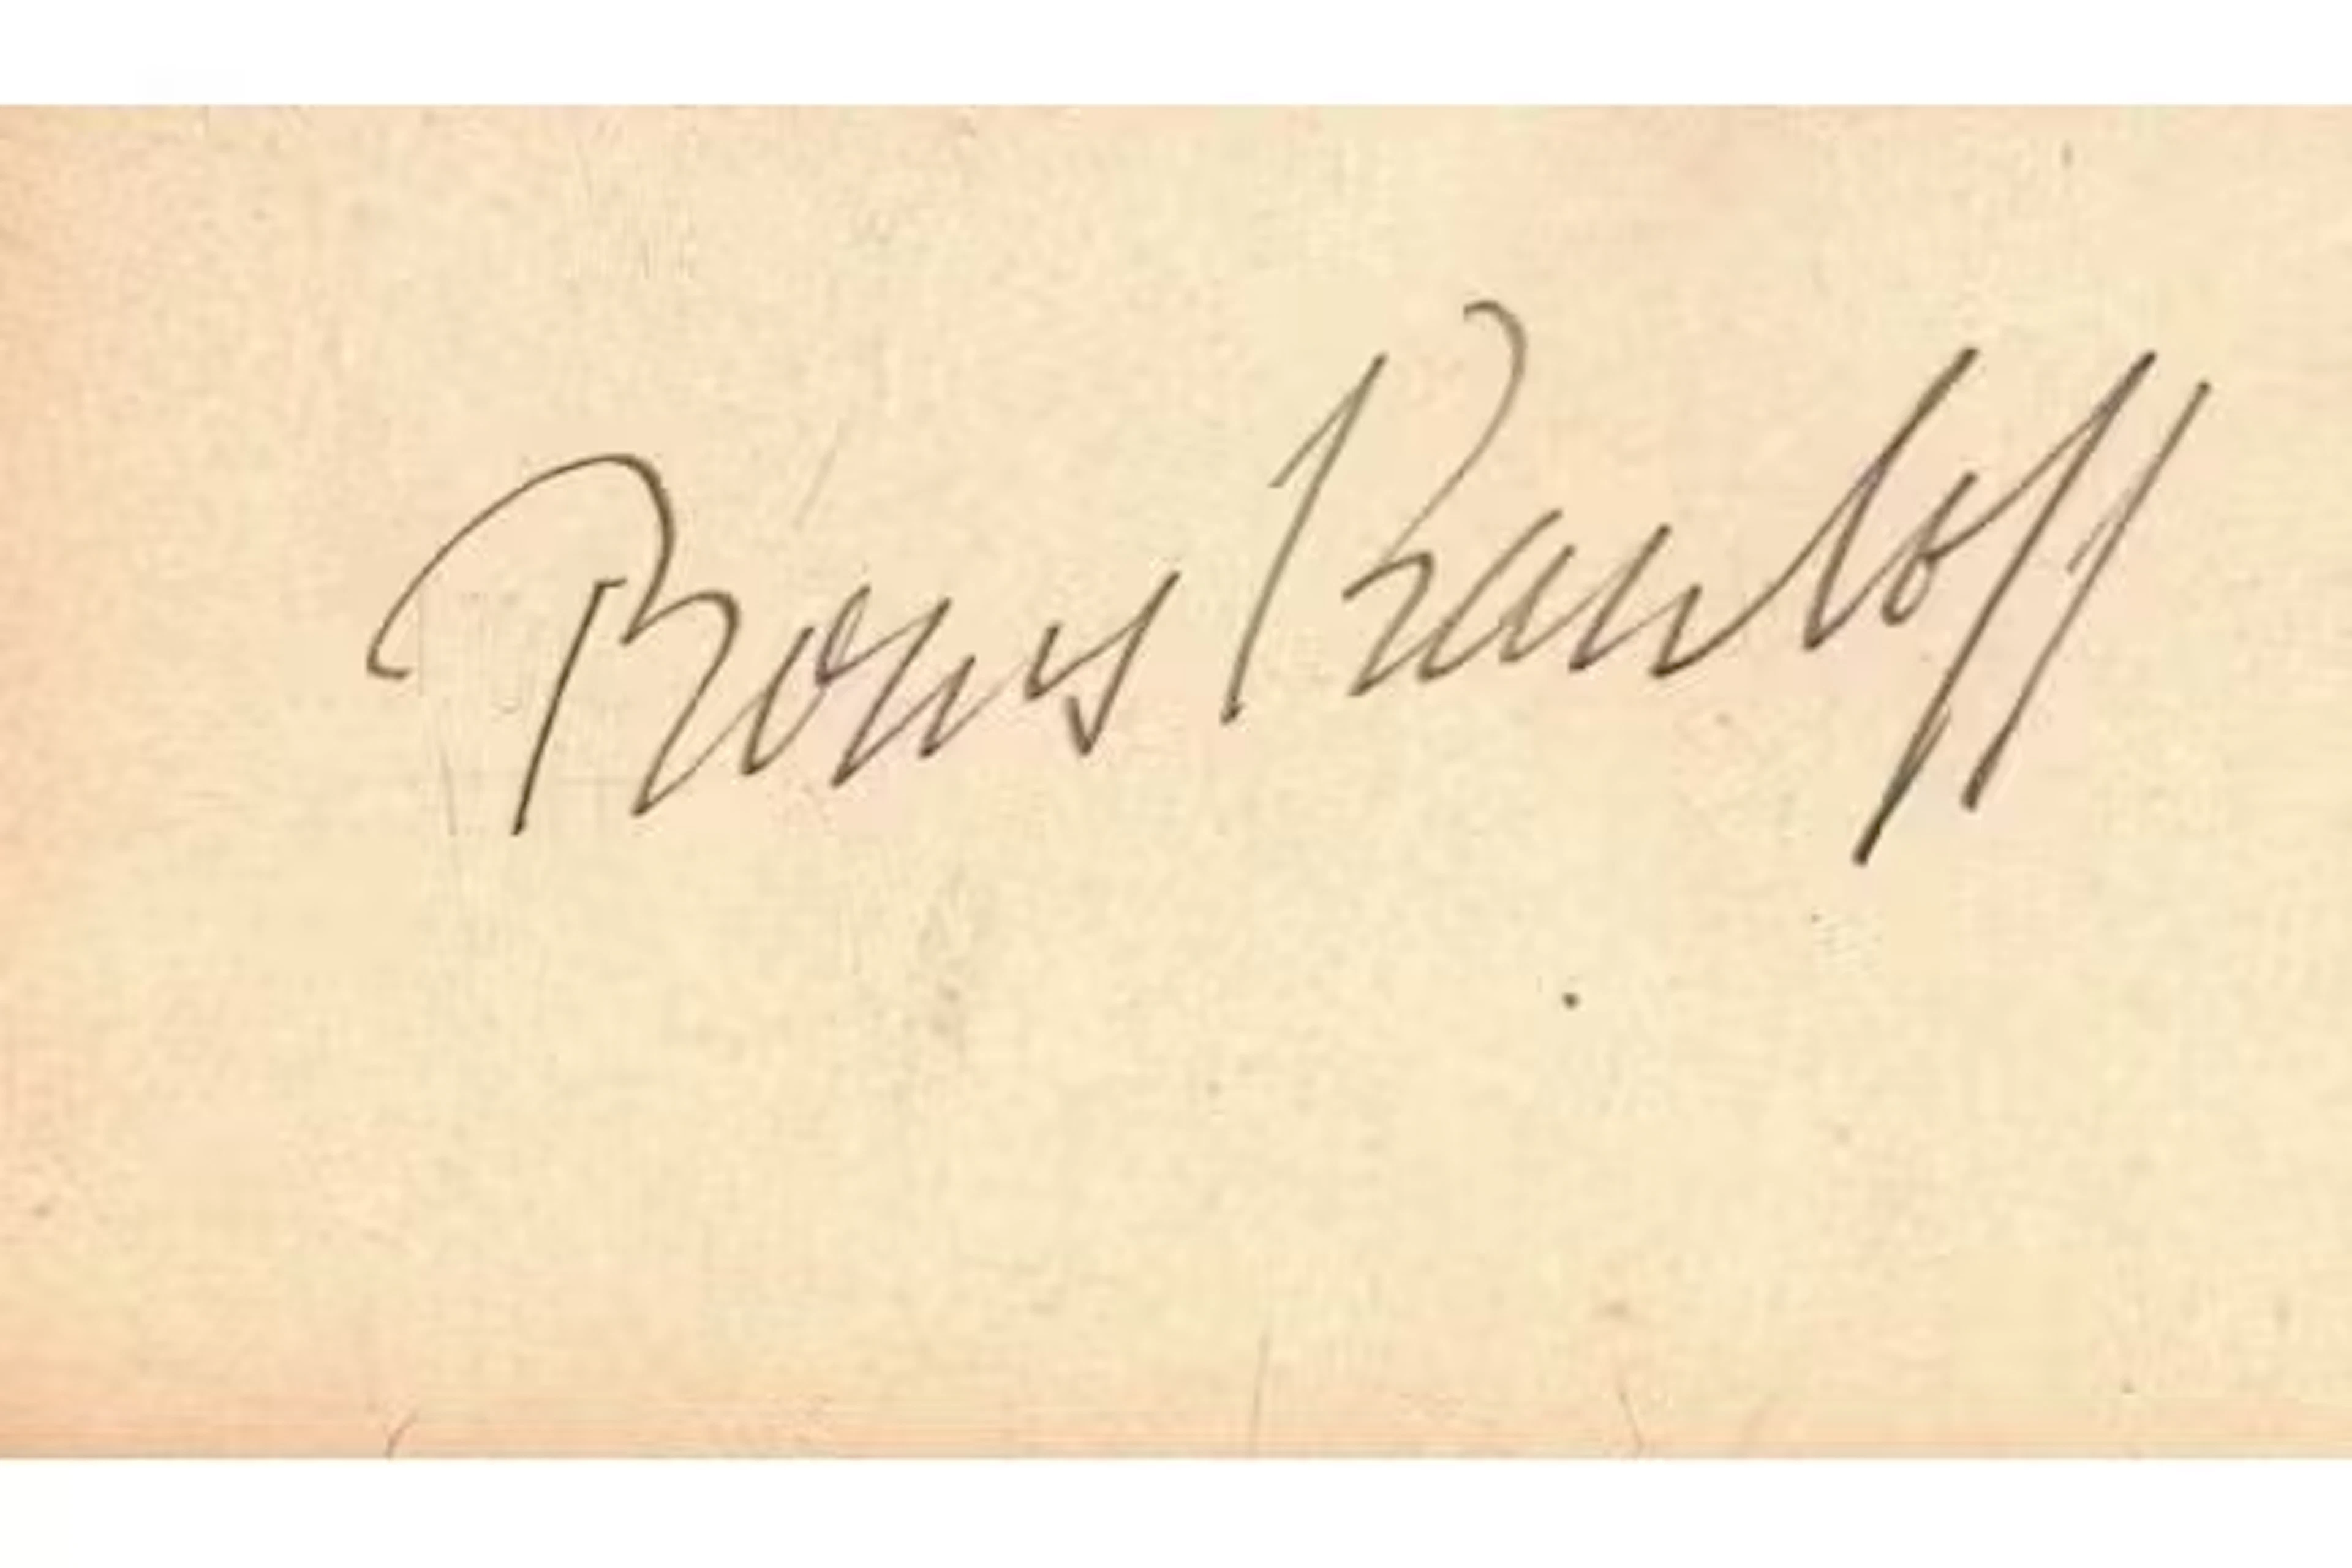 Boris Karloff